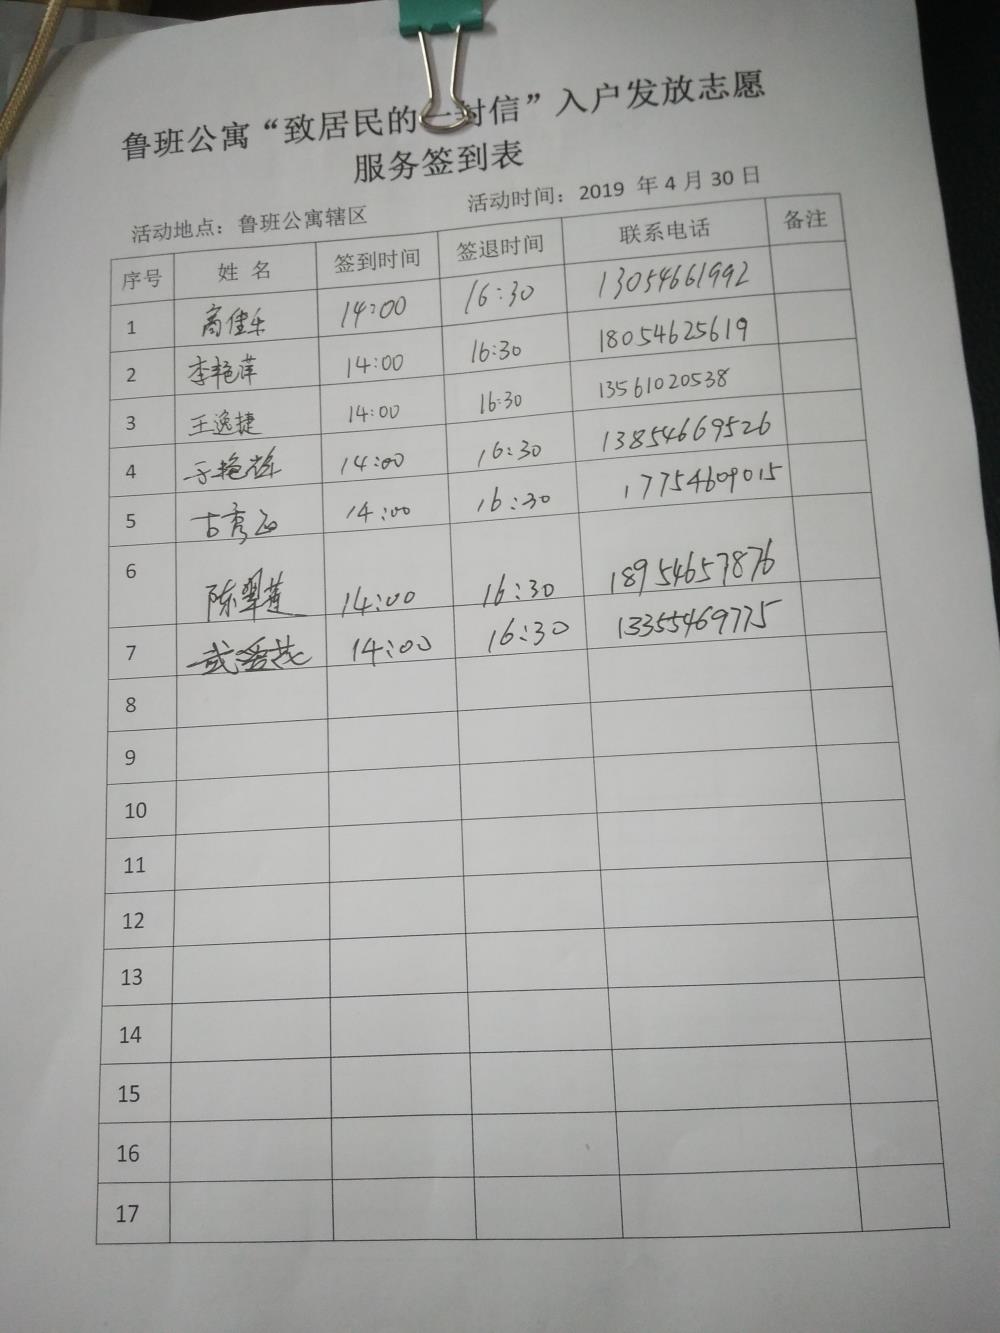 鲁班公寓“致居民的一封信”入户发放志愿
服务签到表
活动地点：鲁班公寓辖区 活动时间：2019 年 4 月 30 日
序号 姓 名 签到时间 签退时间 联系电话 备注
1 高佳乐 14:00 16:30 13054661992
2 李艳萍 14:00 16:30 18054625619
3 王逸捷 14:00 16:30 13561020538
4 14:00 16:30 13854669526
5 古秀 14:00 16:30 17754609015
6 陈翠莲 14:00 16:30 18954657876
7 14:00 16:30 13355469775
8
9
10
11
12
13
14
15
16
17